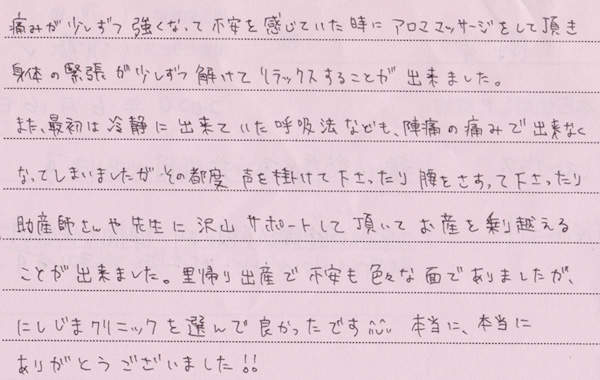 痛みが少しずつ強くなって不安を感じていた時にアロママッサージをして頂き
身体の緊張が少しずつ解けてリラックスすることが出来ました。
また、最初は冷静に出来ていた呼吸法なども、陣痛の痛みで出来なく
なってしまいましたがその都度声を掛けて下さったり腰をさすって下さったり
助産師さんや先生に沢山サポートして頂いてお産を乗り越える
ことが出来ました。里帰り出産で不安も色々な面でありましたが、
にしじまクリニックを選んで良かったです^^ 本当に、本当に
ありがとうございました!!